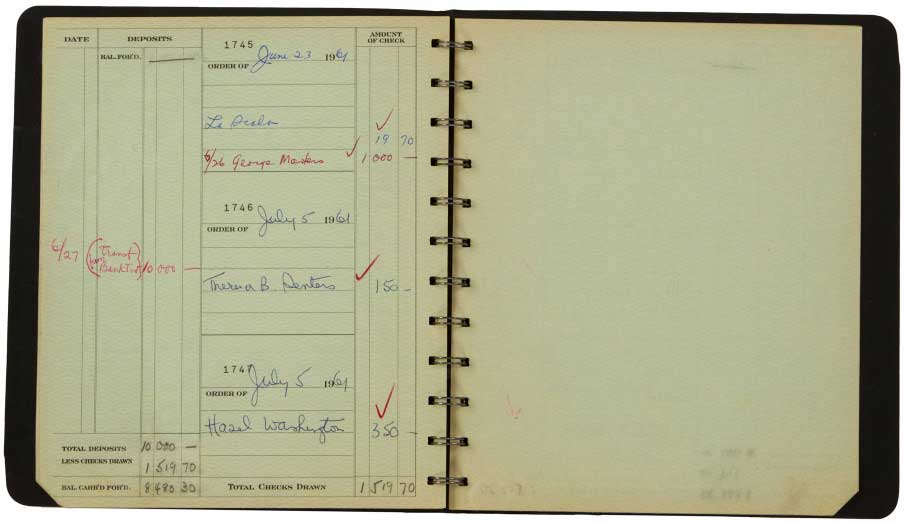 DATE DEPOSITS AMOUNT OF CHECK
BAL. FOR'D.
1745
ORDER OF June 23 1961
La Scala
19 70
6/26 George Masters 1 000 —
1746
ORDER OF July 5 1961
6/27 (Transf from Bank Tr) 10 000 —
Theresa B. 150 —
1747
ORDER OF July 5 1961
Hazel Washington 350 —
TOTAL DEPOSITS 10 000 —
LESS CHECKS DRAWN 1 519 70
BAL. CARR'D FOR'D. 8 480 30 TOTAL CHECKS DRAWN 1 519 70